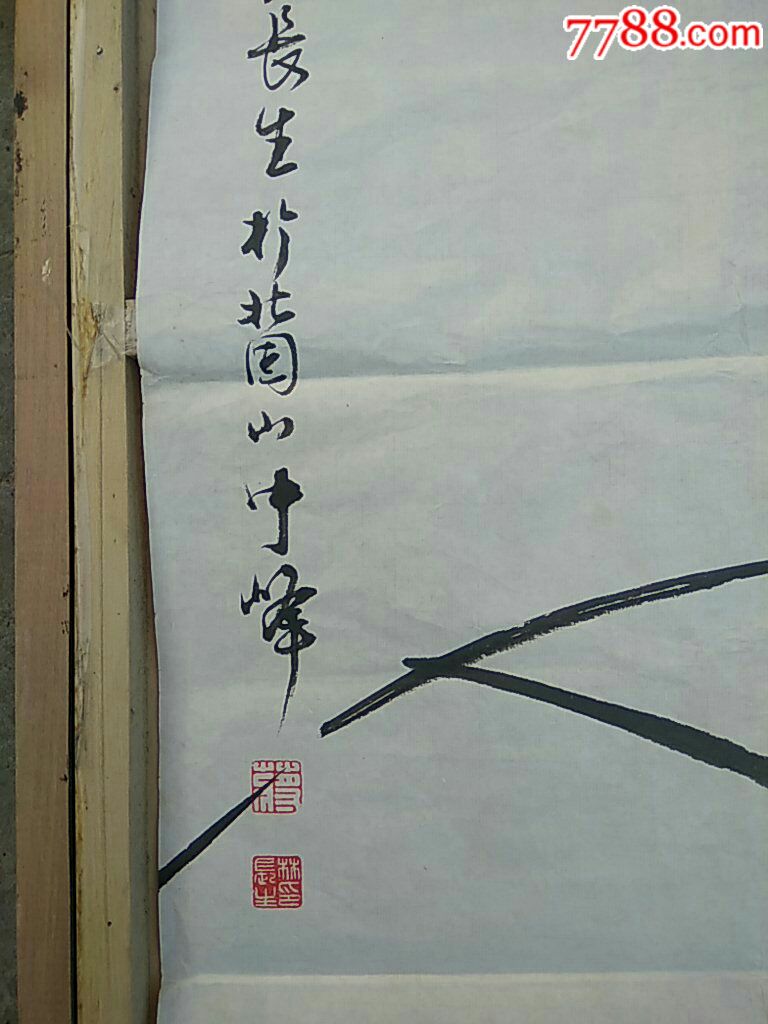 7788.com
長生於北固山中峰
林印
長生